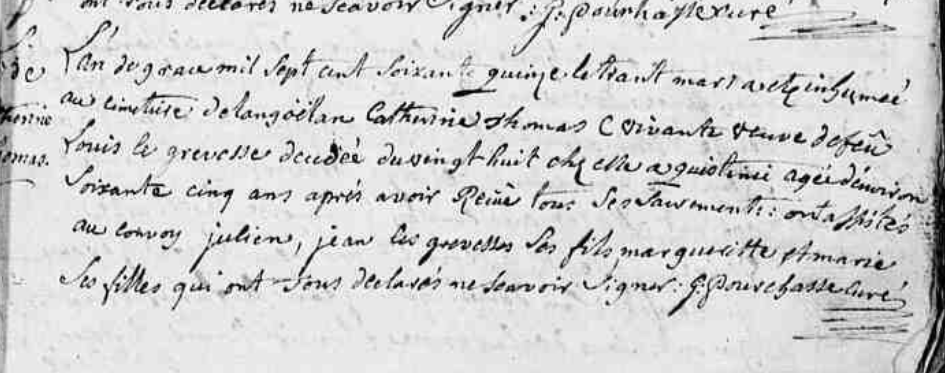 ont tous declarés ne scavoir signer: G: Pourchasse curé
S: de
Catherine
Thomas.
L'an de grace mil sept cent soixante quinze le trant mars a eté inhumeé
au cimetiere de langoëlan Catherine thomas C vivante veuve de feû
Louis le grevesse decedéé du vingt huit chez elle a quistinic ageé d'environ
soixante cinq ans aprés avoir Recûë tous ses sacrements: ont assistés
au convoy julien, jean les grevesses ses fils margueritte et marie
ses filles qui ont tous declarés ne scavoir signer: G: Pourchasse curé